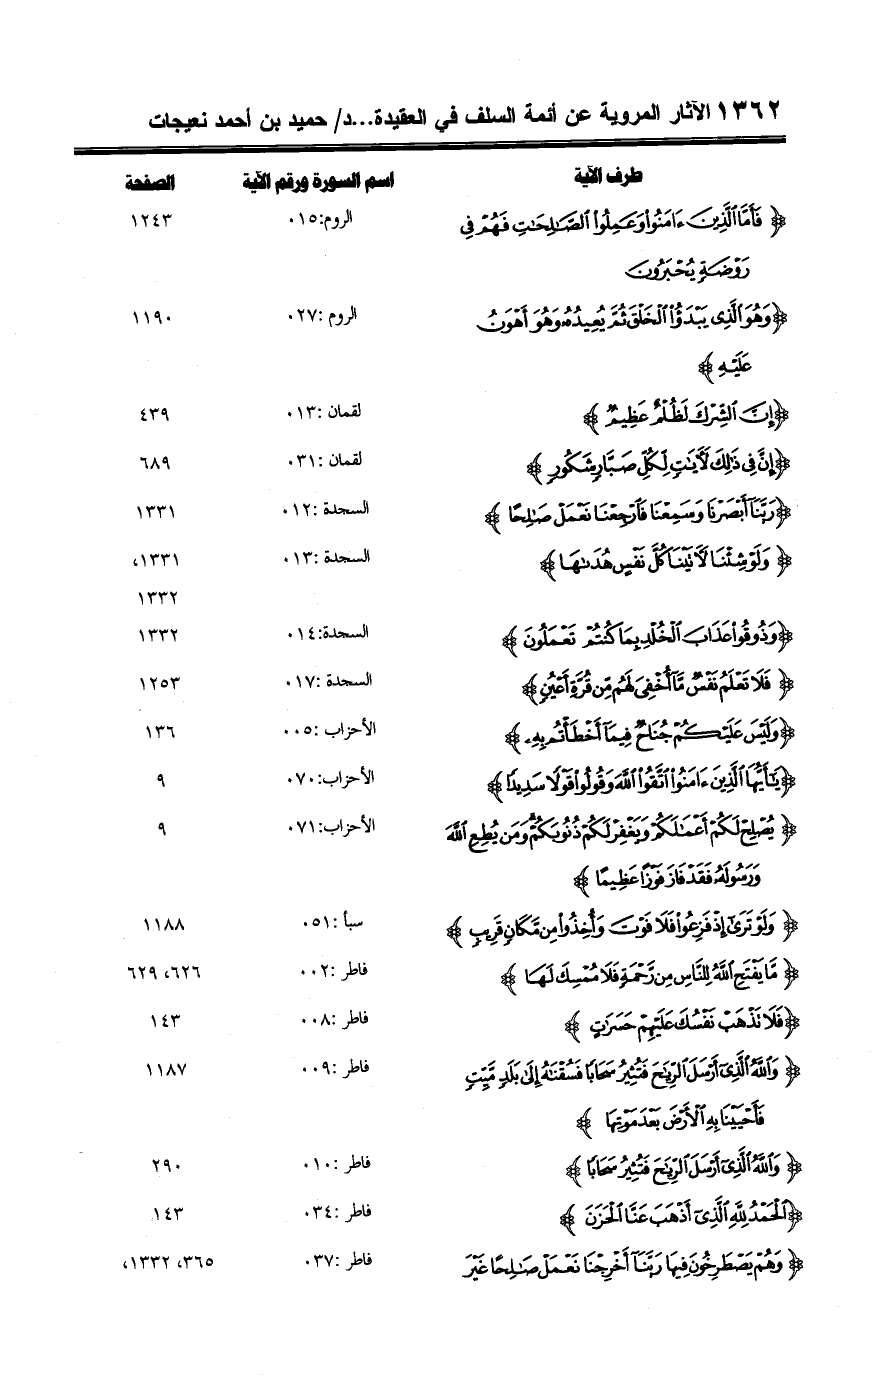 ١٣٦٢ الآثار المروية عن أئمة السلف في العقيدة...د/ حميد بن أحمد نعيجات
طرف الآية اسم السورة ورقم الآية الصفحة
﴿ فَأَمَّا الَّذِينَ ءَامَنُوا وَعَمِلُوا الصَّالِحَاتِ فَهُمْ فِي الروم:٠١٥ ١٢٤٣
رَوْضَةٍ يُحْبَرُونَ
﴿وَهُوَ الَّذِي يَبْدَؤُا الْخَلْقَ ثُمَّ يُعِيدُهُ وَهُوَ أَهْوَنُ الروم :٠٢٧ ١١٩٠
عَلَيْهِ ﴾
﴿إِنَّ الشِّرْكَ لَظُلْمٌ عَظِيمٌ ﴾ لقمان :٠١٣ ٤٣٩
﴿إِنَّ فِي ذَلِكَ لَآيَاتٍ لِكُلِّ صَبَّارٍ شَكُورٍ ﴾ لقمان :٠٣١ ٦٨٩
﴿رَبَّنَا أَبْصَرْنَا وَسَمِعْنَا فَارْجِعْنَا نَعْمَلْ صَالِحًا ﴾ السجدة :٠١٢ ١٣٣١
﴿ وَلَوْ شِئْنَا لَآتَيْنَا كُلَّ نَفْسٍ هُدَاهَا ﴾ السجدة :٠١٣ ١٣٣١،
١٣٣٢
﴿وَذُوقُوا عَذَابَ الْخُلْدِ بِمَا كُنتُمْ تَعْمَلُونَ ﴾ السجدة:٠١٤ ١٣٣٢
﴿ فَلَا تَعْلَمُ نَفْسٌ مَّا أُخْفِيَ لَهُم مِّن قُرَّةِ أَعْيُنٍ ﴾ السجدة :٠١٧ ١٢٥٣
﴿وَلَيْسَ عَلَيْكُمْ جُنَاحٌ فِيمَا أَخْطَأْتُم بِهِ ﴾ الأحزاب :٠٠٥ ١٣٦
﴿يَاأَيُّهَا الَّذِينَ ءَامَنُوا اتَّقُوا اللَّهَ وَقُولُوا قَوْلًا سَدِيدًا ﴾ الأحزاب:٠٧٠ ٩
﴿ يُصْلِحْ لَكُمْ أَعْمَالَكُمْ وَيَغْفِرْ لَكُمْ ذُنُوبَكُمْ وَمَن يُطِعِ اللَّهَ الأحزاب:٠٧١ ٩
وَرَسُولَهُ فَقَدْ فَازَ فَوْزًا عَظِيمًا ﴾
﴿ وَلَوْ تَرَى إِذْ فَزِعُوا فَلَا فَوْتَ وَأُخِذُوا مِن مَّكَانٍ قَرِيبٍ ﴾ سبأ :٠٥١ ١١٨٨
﴿ مَّا يَفْتَحِ اللَّهُ لِلنَّاسِ مِن رَّحْمَةٍ فَلَا مُمْسِكَ لَهَا ﴾ فاطر :٠٠٢ ٦٢٦، ٦٢٩
﴿فَلَا تَذْهَبْ نَفْسُكَ عَلَيْهِمْ حَسَرَاتٍ ﴾ فاطر :٠٠٨ ١٤٣
﴿ وَاللَّهُ الَّذِي أَرْسَلَ الرِّيَاحَ فَتُثِيرُ سَحَابًا فَسُقْنَاهُ إِلَى بَلَدٍ مَّيِّتٍ فاطر :٠٠٩ ١١٨٧
فَأَحْيَيْنَا بِهِ الْأَرْضَ بَعْدَ مَوْتِهَا ﴾
﴿ وَاللَّهُ الَّذِي أَرْسَلَ الرِّيَاحَ فَتُثِيرُ سَحَابًا ﴾ فاطر :٠١٠ ٢٩٠
﴿الْحَمْدُ لِلَّهِ الَّذِي أَذْهَبَ عَنَّا الْحَزَنَ ﴾ فاطر :٠٣٤ ١٤٣
﴿ وَهُمْ يَصْطَرِخُونَ فِيهَا رَبَّنَا أَخْرِجْنَا نَعْمَلْ صَالِحًا غَيْرَ فاطر :٠٣٧ ٣٦٥، ١٣٣٢،